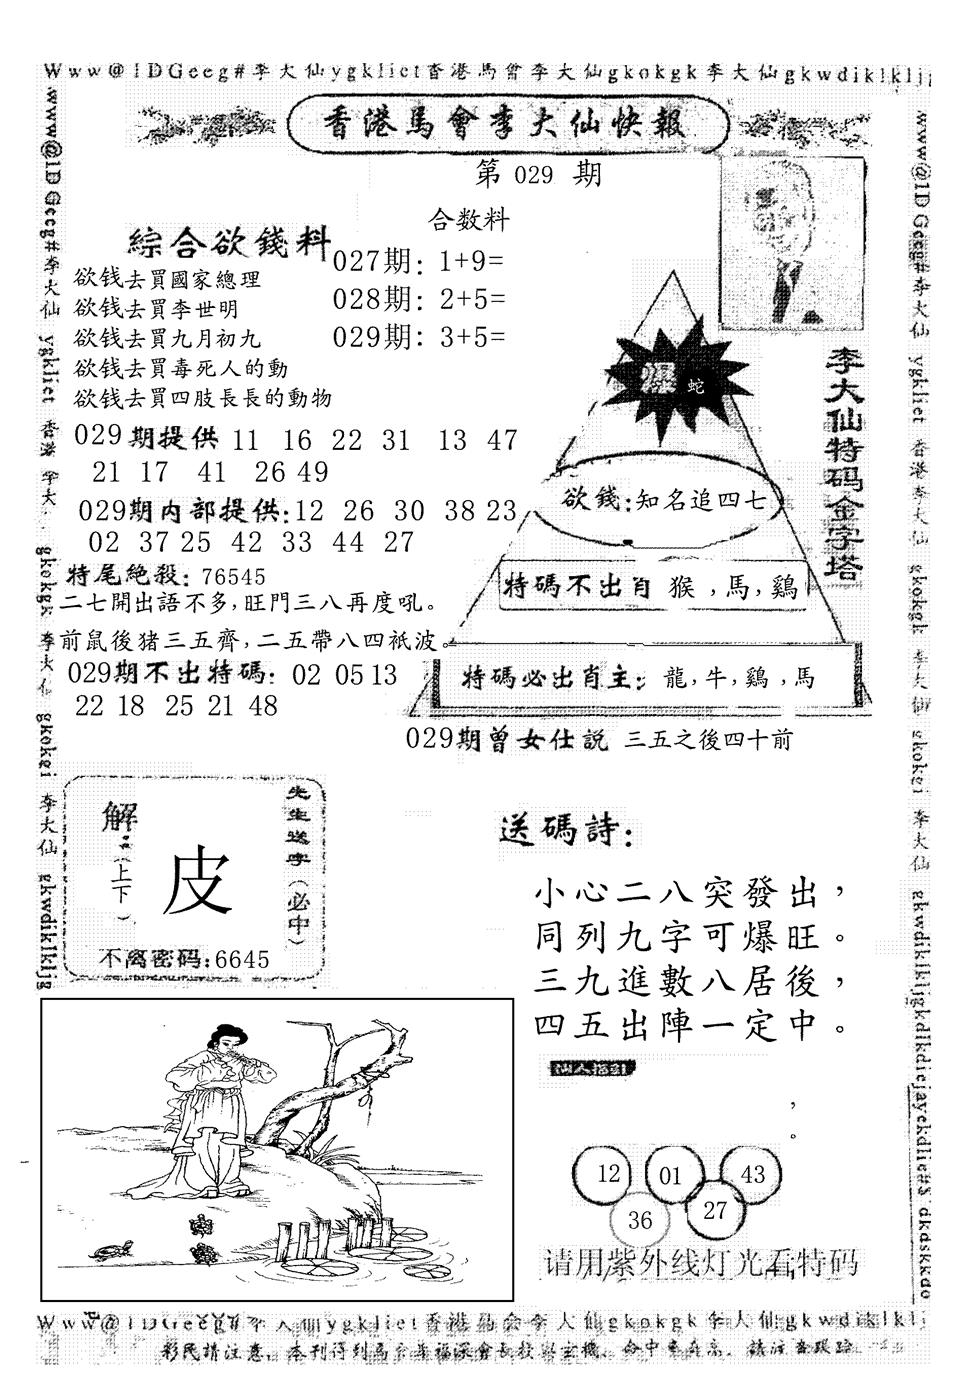 Www@1DGeeg#李大仙ygklict香港馬會李大仙gkokgk李大仙gkwdiklklj
香港馬會李大仙快報
第 029 期
綜合欲錢料
欲钱去買國家總理
欲钱去買李世明
欲钱去買九月初九
欲钱去買毒死人的動
欲钱去買四肢長長的動物
合数料
027期: 1+9=
028期: 2+5=
029期: 3+5=
029期提供 11 16 22 31 13 47
21 17 41 26 49
029期内部提供:12 26 30 38 23
02 37 25 42 33 44 27
特尾絶殺: 76545
二七開出語不多,旺門三八再度吼。
前鼠後猪三五齊,二五帶八四衹波。
029期不出特碼: 02 05 13
22 18 25 21 48
李大仙特码金字塔
爆 蛇
欲錢:知名追四七
特碼不出肖 猴,馬,鷄
特碼必出肖主: 龍,牛,鷄,馬
029期曾女仕説 三五之後四十前
先生送字(必中)
解:(上下)
皮
不离密码:6645
送碼詩:
小心二八突發出,
同列九字可爆旺。
三九進數八居後,
四五出陣一定中。
仙人指引
,
。
12 01 43
36 27
请用紫外线灯光看特码
www@1DGeeg#李大仙 ygklict 香港 李大 gkokgk 李大仙 gkokgi 李大仙 gkwdiklkljg
www@1DGeeg#李大仙 ygklict 香港李大仙 gkokgk 李大仙 gkokgi 李大仙
Www@1DGeeg#李大仙ygklict香港馬會李大仙gkokgk李大仙gkwdiklklj
彩民請注意,本刊得到馬會